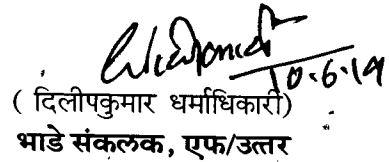 10.6.19
( दिलीपकुमार धर्माधिकारी)
भाडे संकलक, एफ/उत्तर